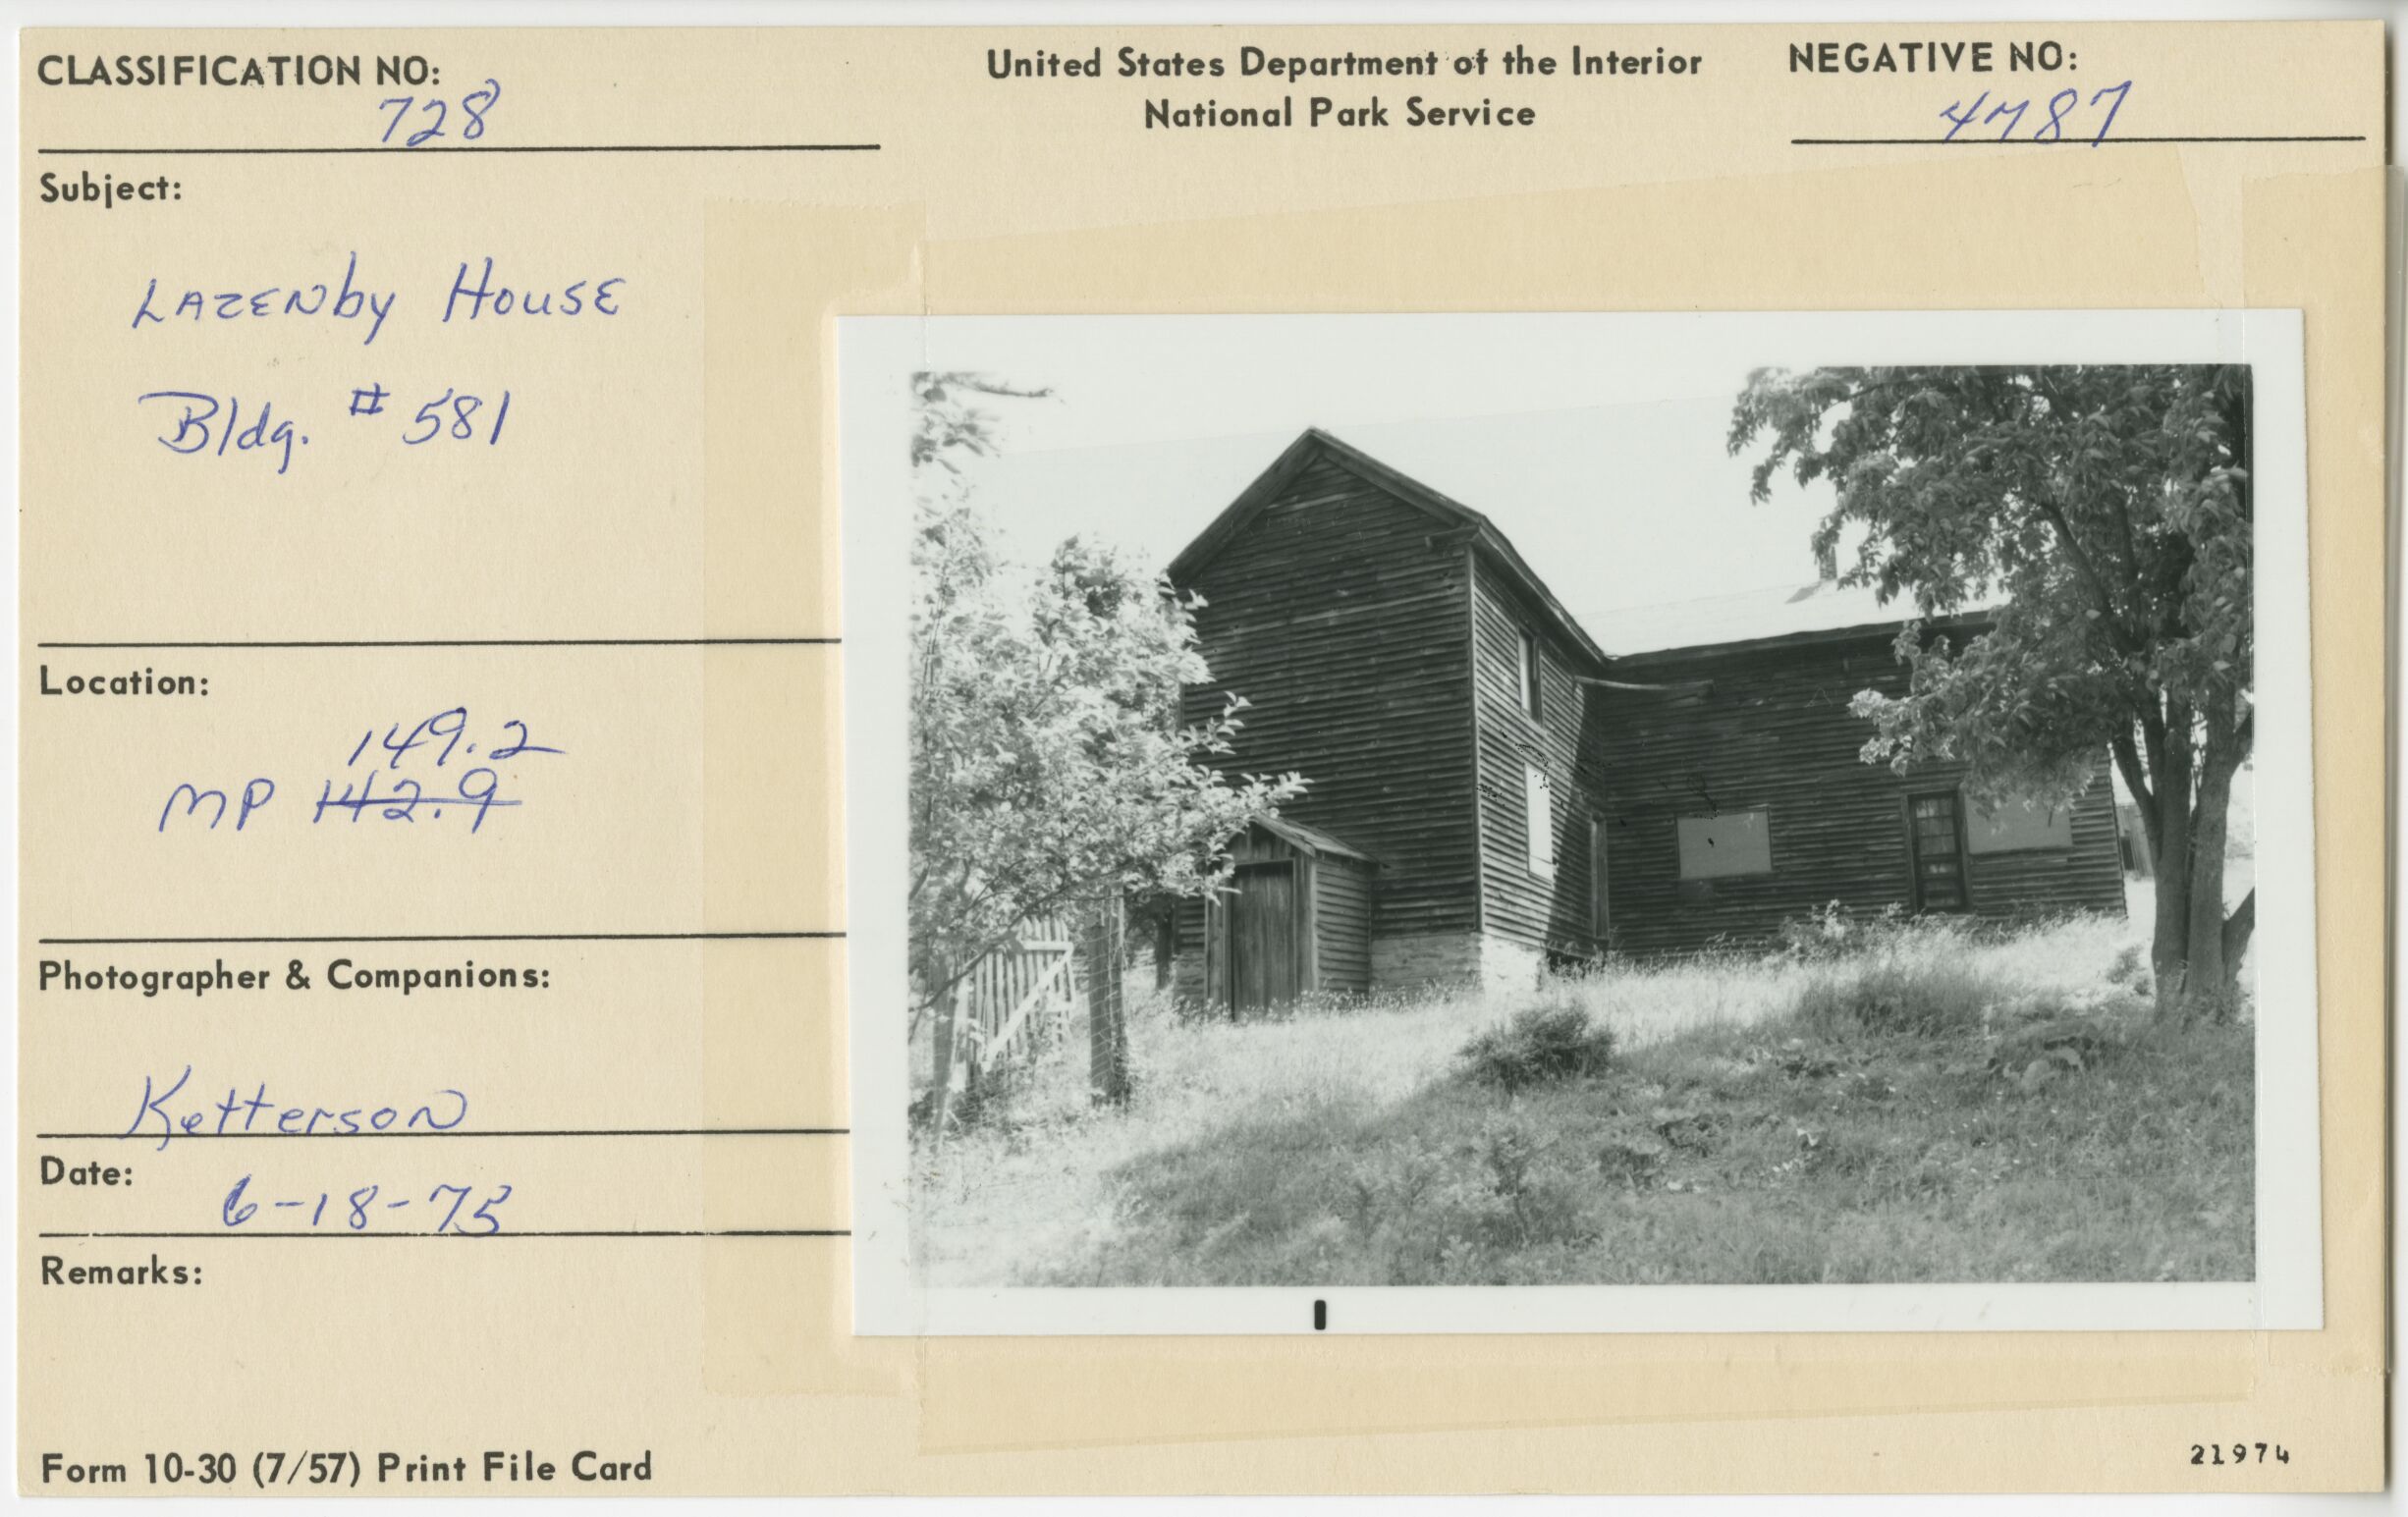 CLASSIFICATION NO:
728
United States Department of the Interior
National Park Service
NEGATIVE NO:
4787
Subject:
Lazenby House
Bldg. # 581
Location:
149.2
MP 142.9
Photographer & Companions:
Ketterson
Date:
6-18-75
Remarks:
Form 10-30 (7/57) Print File Card
21974